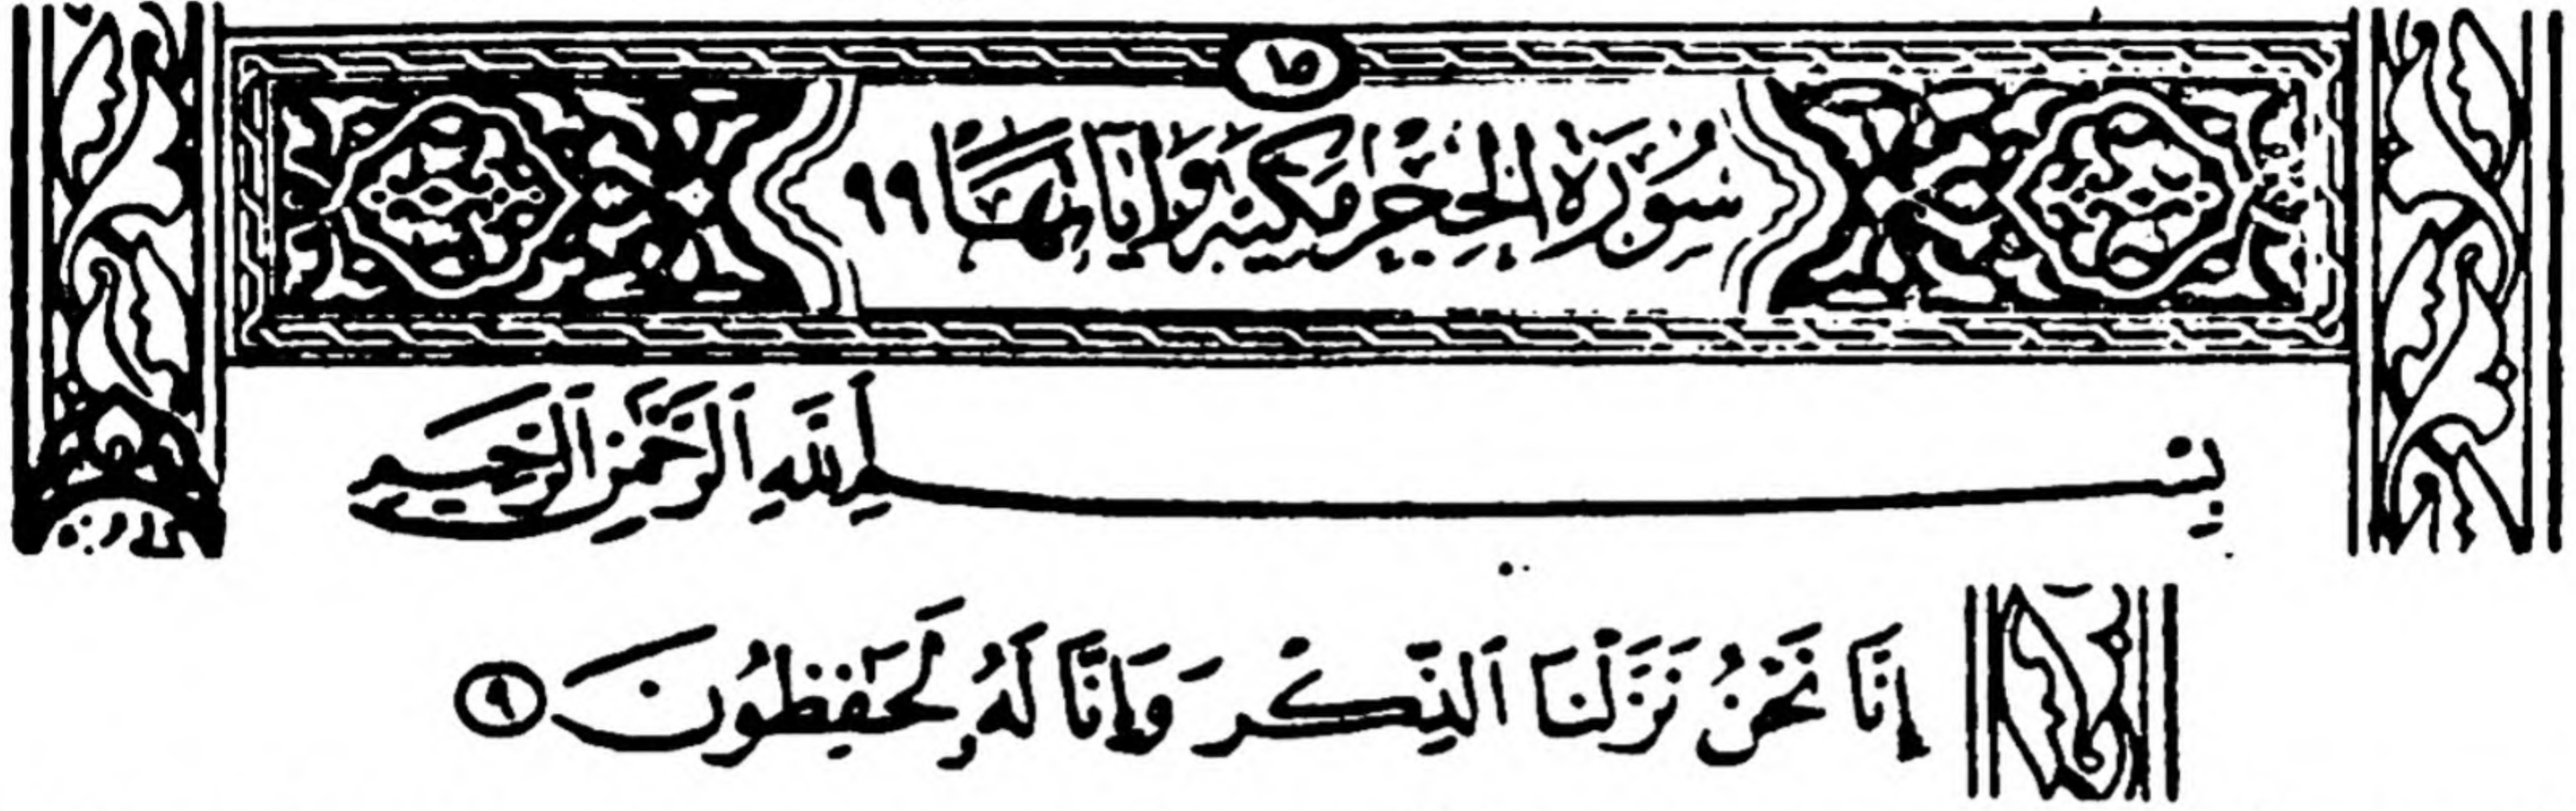 ١٥
سُورَةُ الحِجْرِ مَكِّيَّةٌ وَآيَاتُهَا ٩٩
بِسْمِ ٱللَّهِ ٱلرَّحْمَٰنِ ٱلرَّحِيمِ
إِنَّا نَحْنُ نَزَّلْنَا ٱلذِّكْرَ وَإِنَّا لَهُۥ لَحَٰفِظُونَ ٩